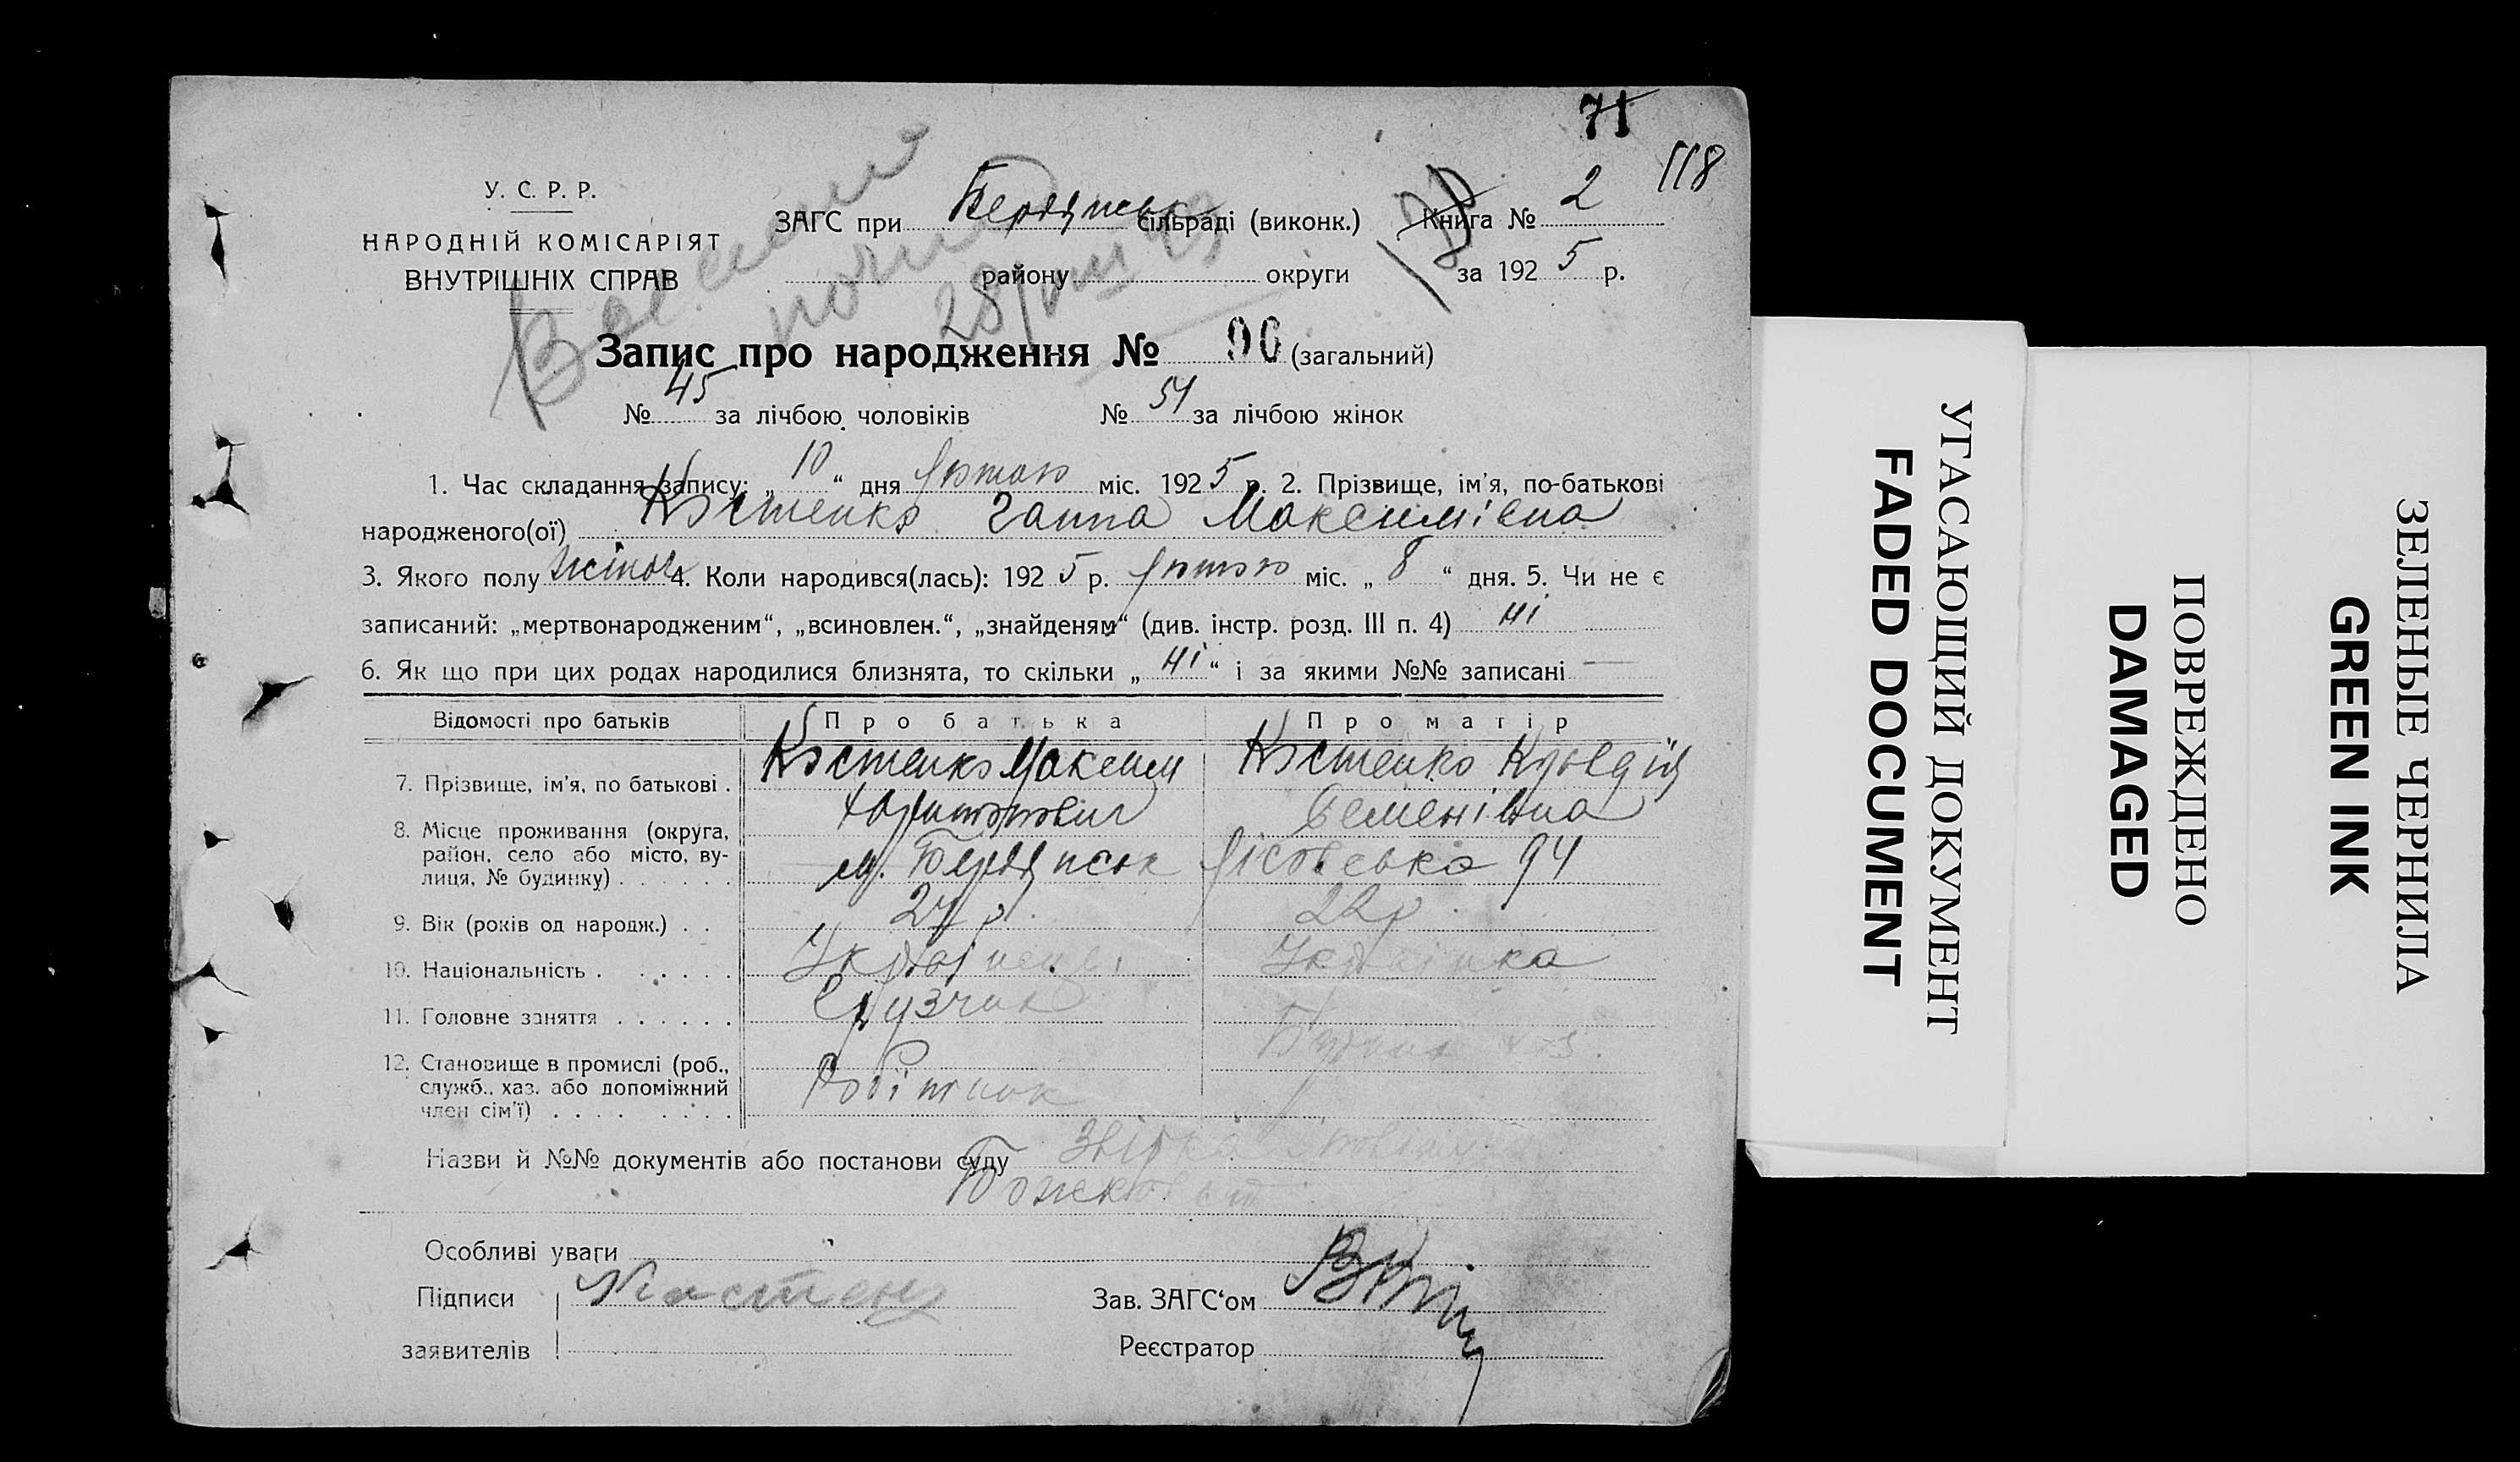 71
118
У. С. Р. Р.
НАРОДНІЙ КОМІСАРІЯТ
ВНУТРІШНІХ СПРАВ
ЗАГС при Бердянськ сільраді (виконк.) Книга № 2
району округи за 1925 р.
28/VIII
Запис про народження № 96 (загальний)
№ 45 за лічбою чоловіків № 51 за лічбою жінок
1. Час складання запису: „10“ дня лютого міс. 1925 р. 2. Прізвище, ім'я, по-батькові
народженого(ої) Костенко Ганна Максимівна
3. Якого полу жіноч 4. Коли народився(лась): 1925 р. лютого міс. „8“ дня. 5. Чи не є
записаний: „мертвонародженим“, „всиновлен.“, „знайденям“ (див. інстр. розд. III п. 4) ні
6. Як що при цих родах народилися близнята, то скільки „ні“ і за якими №№ записані —
Відомості про батьків Про батька Про матір
7. Прізвище, ім'я, по батькові . Костенко Максим Харитонович Костенко Клавдія Семенівна
8. Місце проживання (округа, район, село або місто, вулиця, № будинку) . . . . . . м. Бердянськ Лісовська 94
9. Вік (років од народж.) . . 27 р. 22 р.
10. Національність . . . . . . Українець Українка
11. Головне заняття . . . . . . Грузчик
12. Становище в промислі (роб., служб., хаз. або допоміжний член сім'ї) . . . . . . . . Робітник
Назви й №№ документів або постанови суду
Особливі уваги
Підписи Костенко Зав. ЗАГС‘ом
заявителів Реєстратор
УГАСАЮЩИЙ ДОКУМЕНТ
FADED DOCUMENT
ПОВРЕЖДЕНО
DAMAGED
ЗЕЛЕНЫЕ ЧЕРНИЛА
GREEN INK